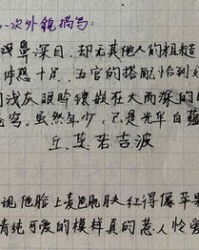 一次外貌描写：
鼻深目，却无其他人的粗糙
十足，五官的搭配恰到好
浅灰眼眸镶嵌在大而深的
虽然年少，已是光华自蕴
丘莫若吉波
他脸上麦色肌肤红得像苹果
清纯可爱的模样真的惹人怜爱